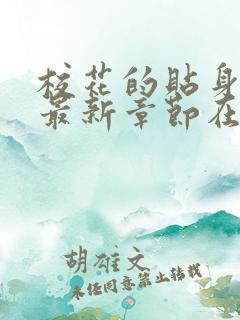 校花的贴身
最新章节在
胡雄文
未经同意禁止转载